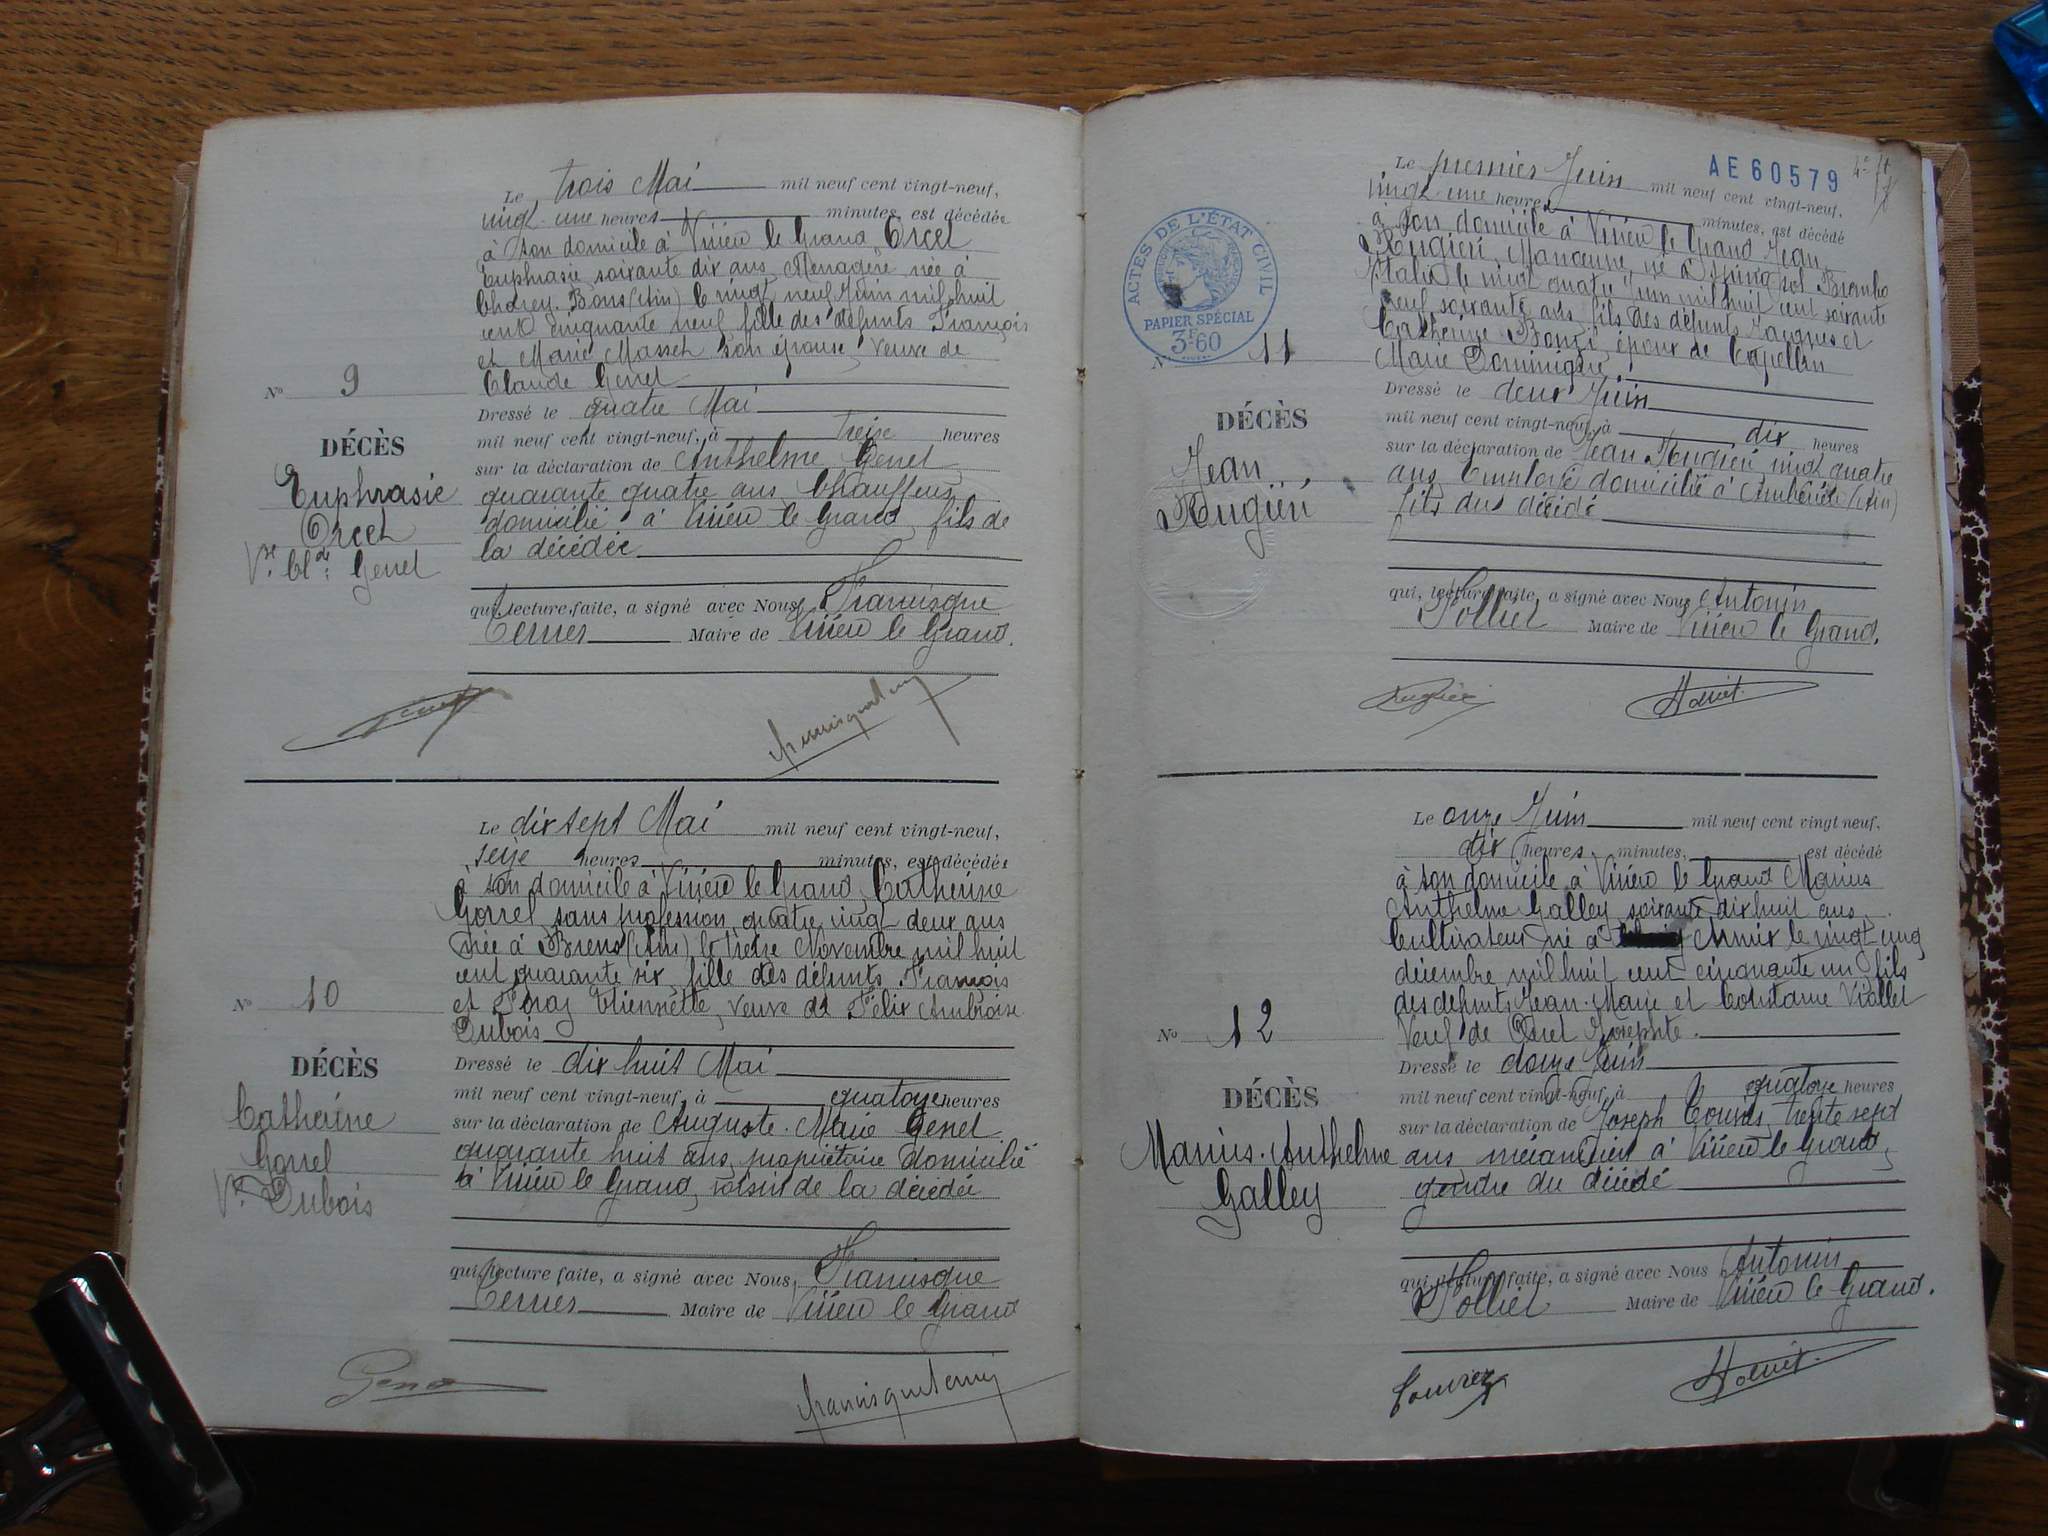 Le trois Mai mil neuf cent vingt-neuf,
vingt une heures minutes, est décédée
à son domicile à Virieu le Grand, Orcel
Euphrasie soixante dix ans, Ménagère née à
Bons (Ain) le vingt neuf Juin mil huit
cent cinquante neuf fille des défunts François
et Marie son épouse, veuve de
Claude Genet
Nº 9
DÉCÈS
Euphrasie
Orcel
Vve Cl de Genet
Dressé le quatre Mai
mil neuf cent vingt-neuf, à treize heures
sur la déclaration de Anthelme Genet
quarante quatre ans, Chauffeur
domicilié à Virieu le Grand, fils de
la décédée
qui, lecture faite, a signé avec Nous, Francisque
Ternes Maire de Virieu le Grand.
Le dix sept Mai mil neuf cent vingt-neuf,
seize heures minutes, est décédée
à son domicile à Virieu le Grand, Catherine
Gorrel, sans profession, quatre vingt deux ans
née à Brens (Ain) le treize Novembre mil huit
cent quarante six, fille des défunts François
et Etiennette, veuve de Félix Ambroise
Dubois
Nº 10
DÉCÈS
Catherine
Gorrel
Vve Dubois
Dressé le dix huit Mai
mil neuf cent vingt-neuf, à quatorze heures
sur la déclaration de Auguste-Marie Genet
quarante huit ans, propriétaire domicilié
à Virieu le Grand, voisin de la décédée
qui, lecture faite, a signé avec Nous, Francisque
Ternes Maire de Virieu le Grand
AE 60579
Le premier Juin mil neuf cent vingt-neuf,
vingt une heures minutes, est décédé
à son domicile à Virieu le Grand Jean
Rugiéri, Manœuvre, né à
Italie le vingt quatre Juin mil huit cent soixante
neuf soixante ans, fils des défunts Jacques et
Catherine époux de Capellin
Marie Dominique
ACTES DE L'ÉTAT CIVIL
PAPIER SPÉCIAL
3F60
Nº 11
DÉCÈS
Jean
Rugiéri
Dressé le deux Juin
mil neuf cent vingt-neuf, à dix heures
sur la déclaration de Jean Rugiéri vingt quatre
ans, Employé domicilié à Ambérieu (Ain)
fils du décédé
qui, lecture faite, a signé avec Nous Antonin
Hollier Maire de Virieu le Grand.
Rugiéri
Le onze Juin mil neuf cent vingt-neuf,
dix heures minutes, est décédé
à son domicile à Virieu le Grand Marius
Anthelme Galley, soixante dix huit ans,
Cultivateur né à le vingt cinq
décembre mil huit cent cinquante un fils
des défunts Jean-Marie et Constance Viallet
Veuf de Josephte.
Nº 12
DÉCÈS
Marius-Anthelme
Galley
Dressé le douze Juin
mil neuf cent vingt-neuf, à quatorze heures
sur la déclaration de Joseph trente sept
ans mécanicien à Virieu le Grand,
gendre du décédé
qui, lecture faite, a signé avec Nous Antonin
Hollier Maire de Virieu le Grand.